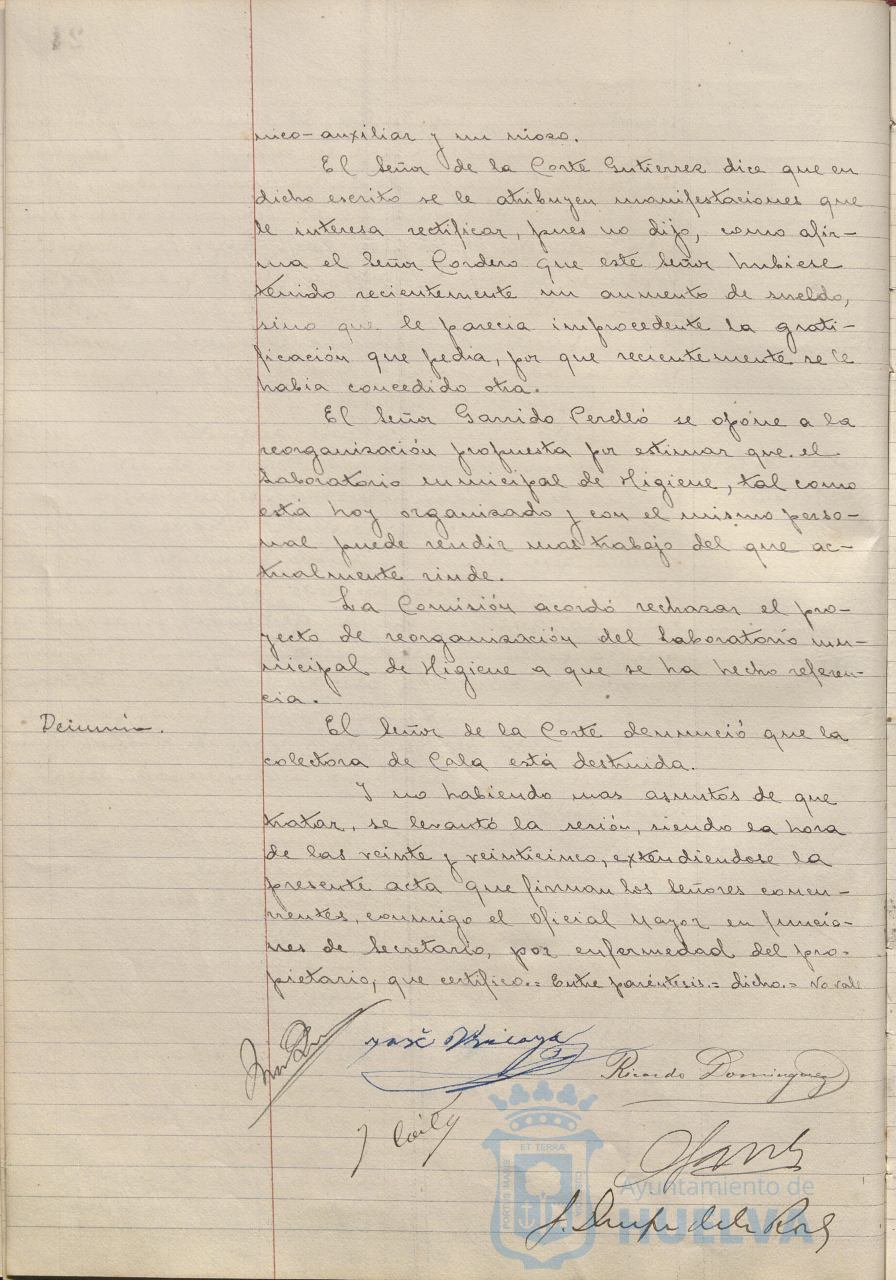 nico-auxiliar y un mozo.
El Señor de la Corte Gutierrez dice que en
dicho escrito se le atribuyen manifestaciones que
le interesa rectificar, pues no dijo, como afir-
ma el Señor Cordero que este Señor hubiese
tenido recientemente un aumento de sueldo,
sino que le parecia improcedente la grati-
ficación que pedia, por que recientemente se le
habia concedido otra.
El Señor Garrido Perelló se opone a la
reorganización propuesta por estimar que el
Laboratorio municipal de Higiene, tal como
está hoy organizado y con el mismo perso-
nal puede rendir mas trabajo del que ac-
tualmente rinde.
La Comisión acordó rechazar el pro-
yecto de reorganización del Laboratorio mu-
nicipal de Higiene a que se ha hecho referen-
cia.
Denuncia.
El Señor de la Corte denunció que la
colectora de Cala está destruida.
Y no habiendo mas asuntos de que
tratar, se levantó la sesión, siendo la hora
de las veinte y veinticinco, extendiendose la
presente acta que firman los señores concu-
rrentes, conmigo el Oficial Mayor en funcio-
nes de Secretario, por enfermedad del pro-
pietario, que certifico.= Entre paréntesis.= dicho.= No vale
José
Ricardo Dominguez
ET TERRÆ
PORTUS MARIS
Ayuntamiento de
HUELVA